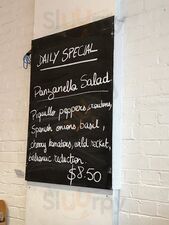 DAILY SPECIAL
Panzanella Salad
Piquillo peppers, croutons,
Spanish onions, basil,
cherry tomatoes, wild rocket,
balsamic reduction.
$8.50